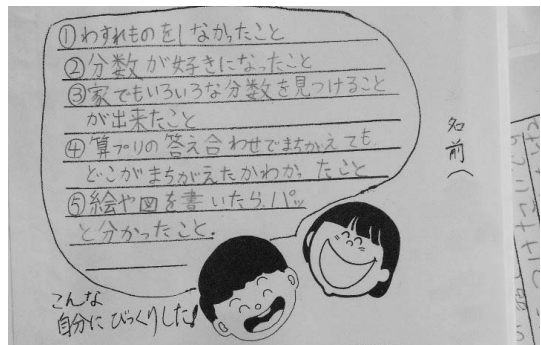 ①わすれものをしなかったこと
②分数が好きになったこと
③家でもいろいろな分数を見つけること
が出来たこと
④算プリの答え合わせでまちがえても、
どこがまちがえたかわかったこと
⑤絵や図を書いたら、パッ
と分かったこと。
こんな
自分にびっくりした!
名前(